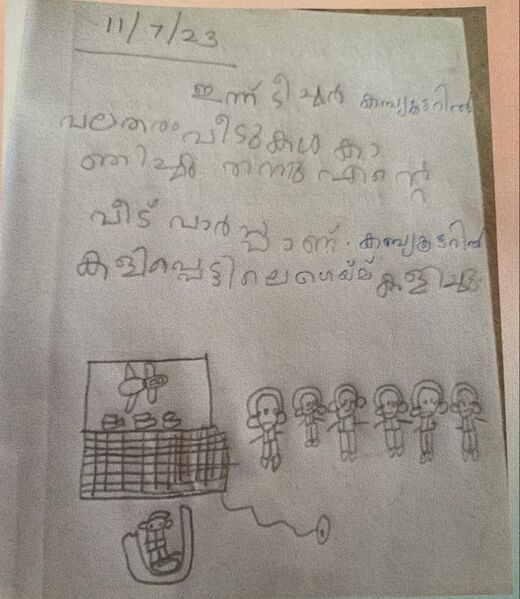 11/7/23
ഇന്ന് ടീച്ചർ കമ്പ്യൂട്ടറിൽ
പലതരം വീടുകൾ കാ
ണിച്ചു തന്നു എന്റെ
വീട് വാർപ്പാണ്. കമ്പ്യൂട്ടറിൽ
കളിപ്പെട്ടിലെ ഗെയ്മ് കളിച്ചു.